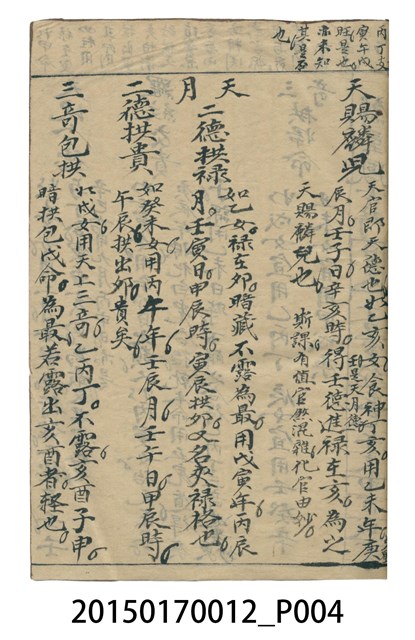 丙丁支
寅午戌
旺是也
亦未知
其是否
也
天賜麟兒
天官即天德也如乙亥女食神丁亥用乙未年庚
辰月壬子日辛亥時得壬德進祿在亥為之
壬是天月德
天賜麟兒也
斯課有值官煞混雜化官由妙
天月
二德拱祿
如乙女祿在卯暗藏不露為最用戊寅年丙辰
月壬寅日甲辰時寅辰拱卯又名夾祿格也
二德拱貴
如癸未女用丙午年壬辰月壬午日甲辰時
午辰拱出卯貴矣
三奇包拱
如戊女用天上三奇乙丙丁不露亥酉子申
暗拱包戊命為最若露出亥酉者輕也
20150170012_P004